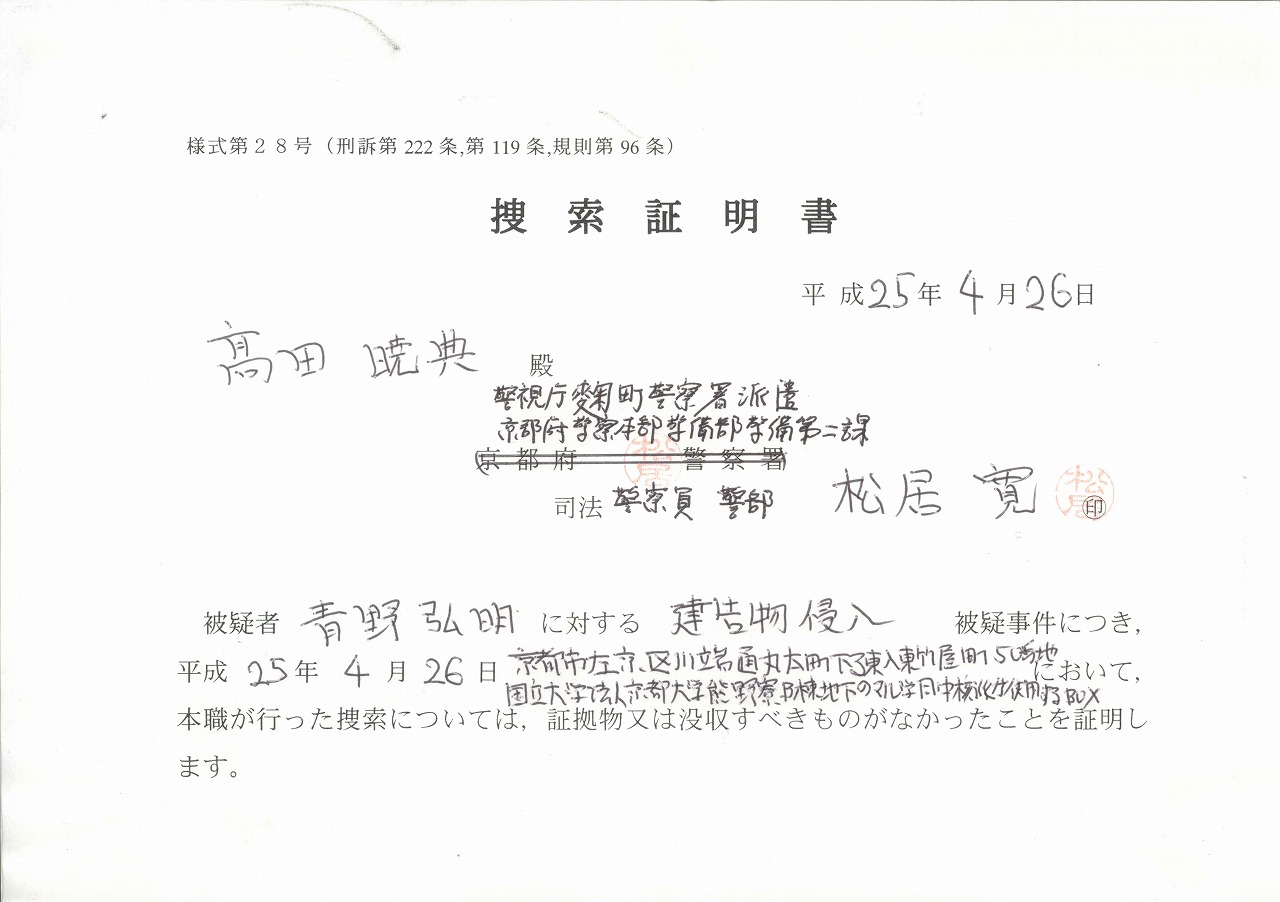 様式第２８号（刑訴第 222 条,第 119 条,規則第 96 条）
捜索証明書
平成25年 4月26日
髙田 暁典 殿
警視庁麹町警察署派遣
京都府警察本部警備部警備第二課
京都府 警察署
松居
司法 警察員 警部 松居 寛 印
松居
被疑者 青野弘明 に対する 建造物侵入 被疑事件につき，
平成 25年 4月 26日 京都市左京区川端通丸太町下る東入東竹屋町50番地 において，
国立大学法人京都大学熊野寮B棟地下のマル学同中核派生使用するBOX
本職が行った捜索については，証拠物又は没収すべきものがなかったことを証明し
ます。